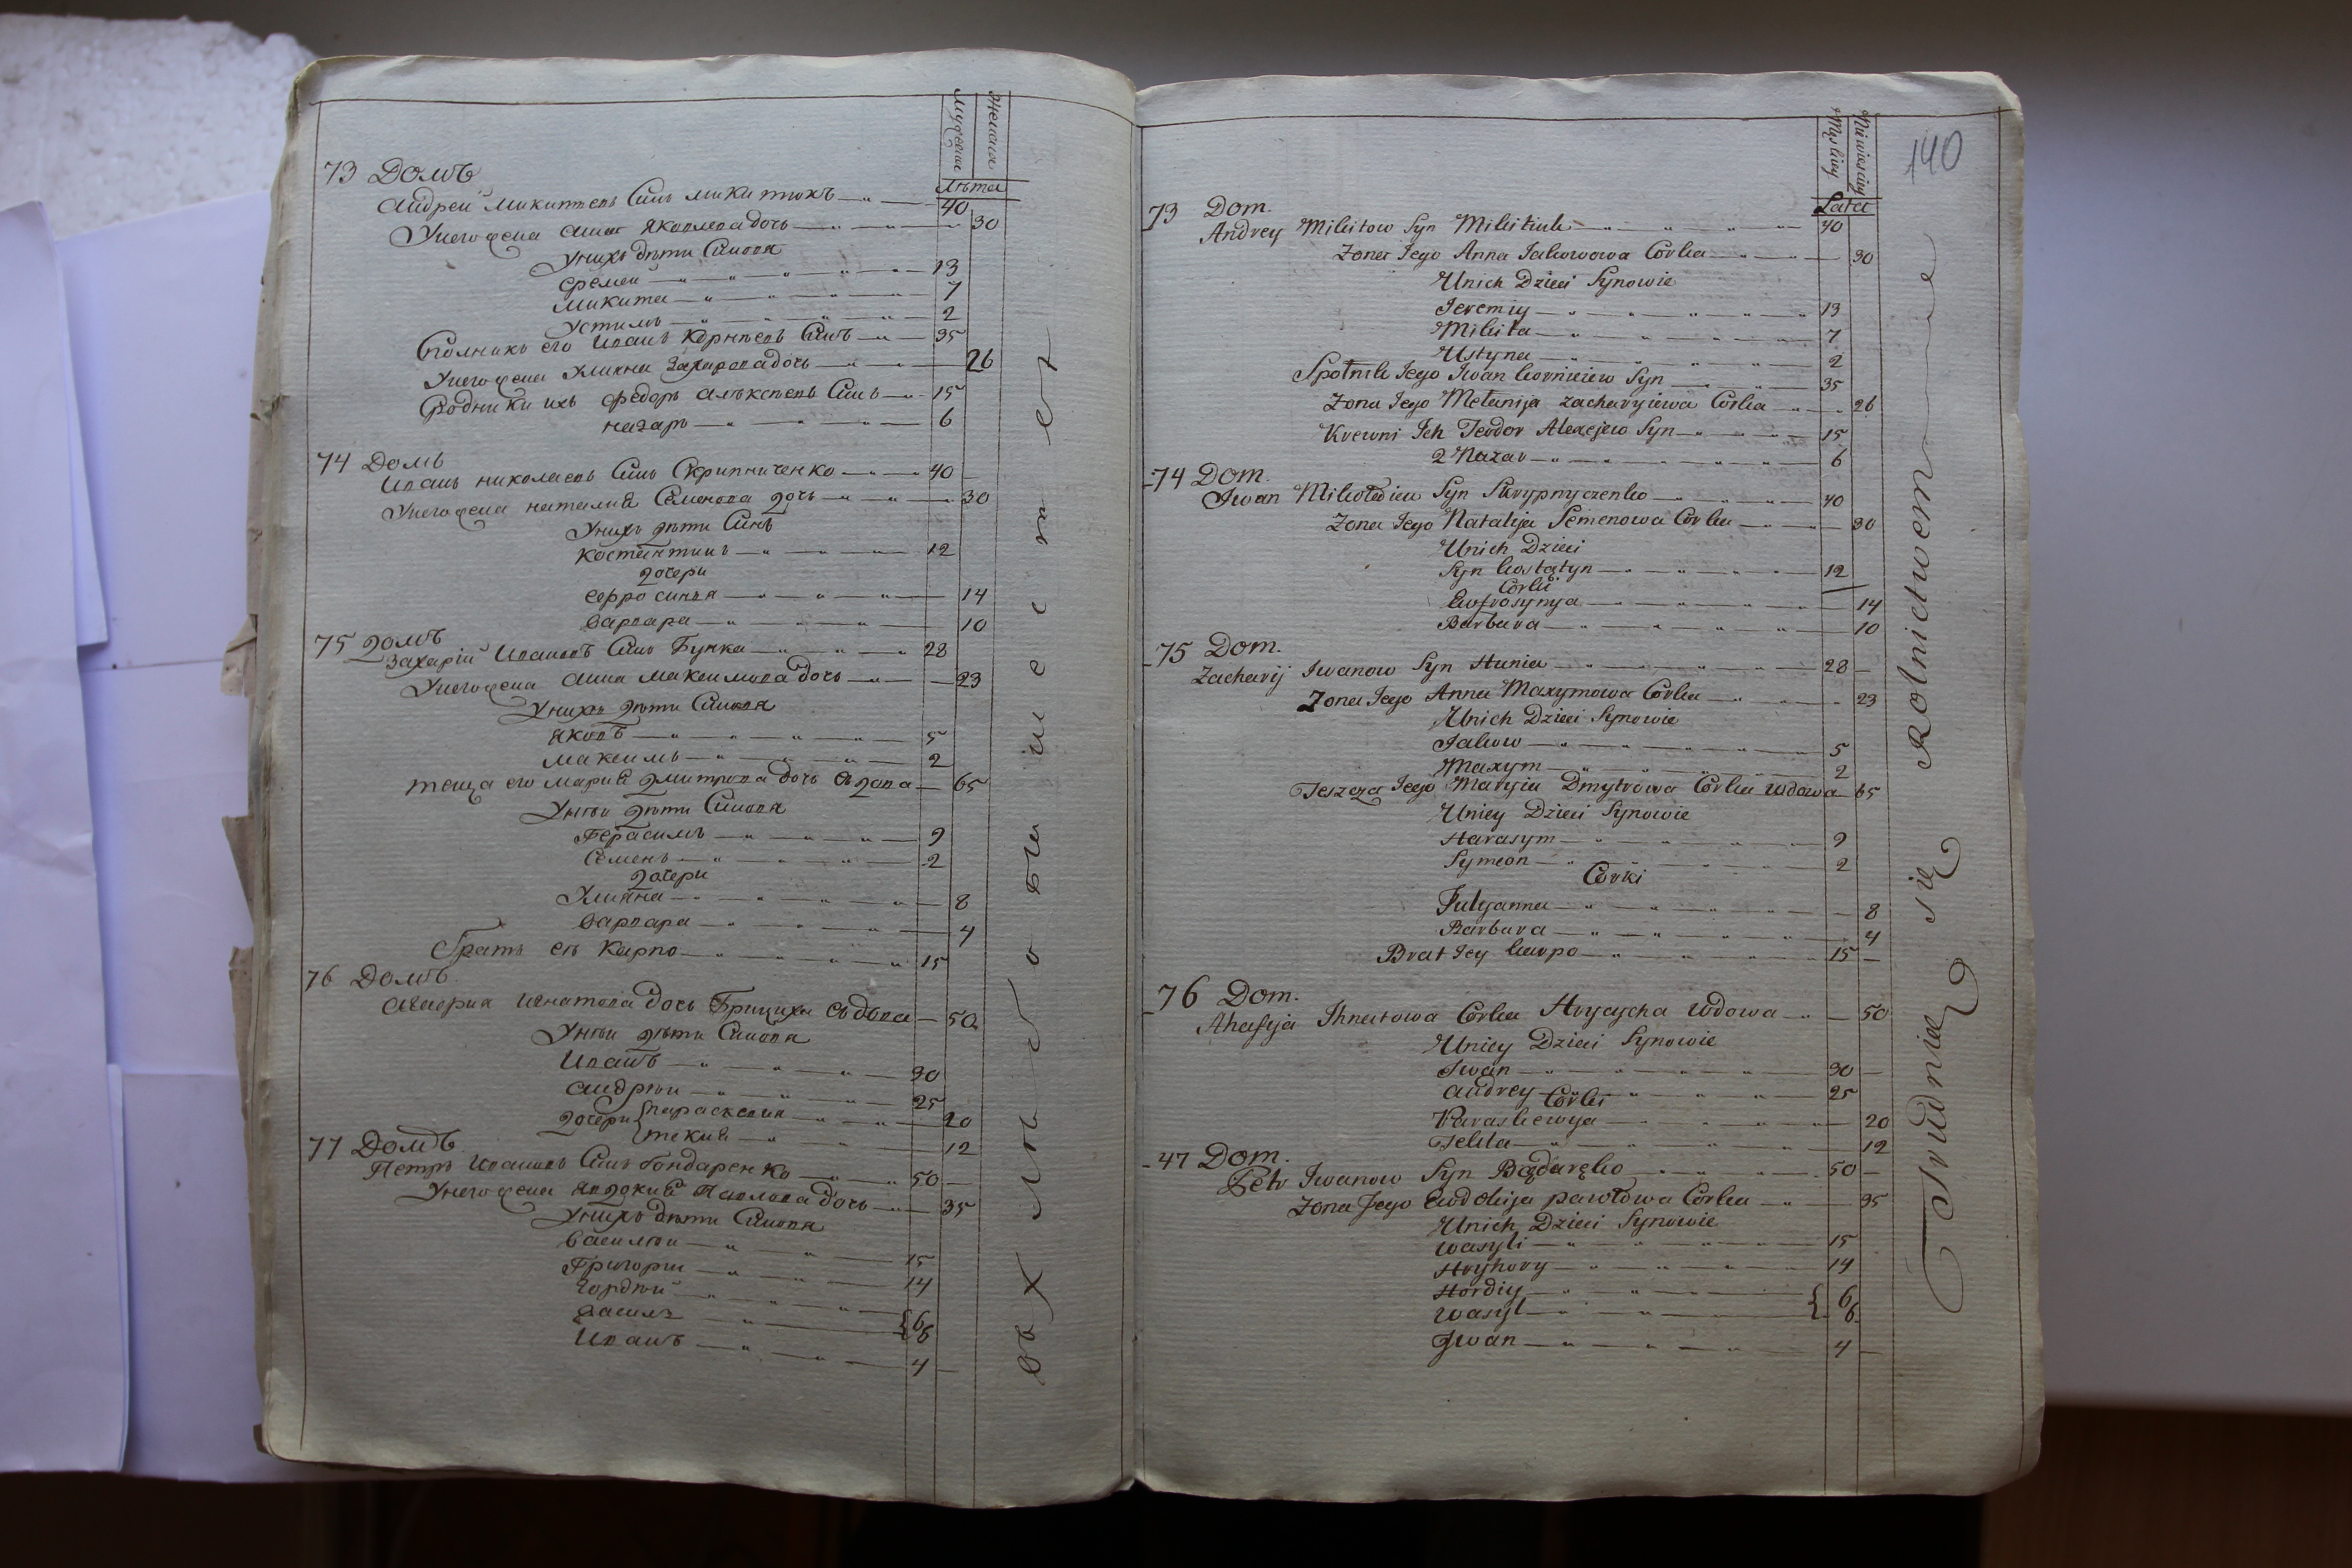 Мужеска
Женска
Лѣта
73 Домъ
Андрей Микитевъ Синъ Микитюкъ 40
У него жена Анна Яковлева дочь 30
У нихъ дѣти Синовя
Еремей 13
Микита 7
Устимъ 2
Сполникъ его Иванъ Корнѣевъ Синъ 35
У него жена Улияна Захарова дочь 26
Сродники ихъ Федоръ Алѣксѣевъ Синъ 15
Назаръ 6
74 Домъ
Иванъ Николаевъ Синъ Скрипниченко 40
У него жена Наталия Семенова дочь 30
У нихъ дѣти Синъ
Костантинъ 12
дочери
Ефросиния 14
Варвара 10
75 Домъ
Захарій Ивановъ Синъ Гунка 28
У него жена Анна Максимова дочь 23
У нихъ дѣти Синовя
Яковъ 5
Максимъ 2
Теща его Мария Дмитрова дочь вдова 65
У неи дѣти Синовя
Герасимъ 9
Семенъ 2
дочери
Улияна 8
Варвара 4
Братъ еѣ Карпо 15
76 Домъ
Игнатова дочь Грициха вдова 50
У неи дѣти Синовя
Иванъ 30
Андрѣи 25
дочери Параскевия 20
Текля 12
77 Домъ
Петръ Ивановъ Синъ Бондаренко 50
У него жена Явдокия Павлова дочь 35
У нихъ дѣти Синовя
Василѣи 15
Григории 14
Гордѣй 6
Василъ 6
Иванъ 4
хлѣбопашест
140
Męskiey
Niewieściey
Lata
73 Dom.
Andrey Mikitow Syn Mikitiuk 40
Zona Jego Anna Jakowowa Corka 30
Unich Dzieci Synowie
Jeremiy 13
Mikita 7
Ustyna 2
Społnik Jego Jwan Korniciew Syn 35
Zona Jego Mełanija Zacharyiewa Corka 26
Krewni Ich Teodor Alexejew Syn 15
2 Nazar 6
74 Dom.
Jwan Mikołaiew Syn Skrypnyczenko 40
Zona Jego Natalija Semenowa Corka 30
Unich Dzieci
Syn Kostątyn 12
Corki
Eufrosynya 14
Barbara 10
75 Dom.
Zacharij Jwanow Syn Hunia 28
Zona Jego Anna Maxymowa Corka 23
Unich Dzieci Synowie
Jakow 5
Maxym 2
Teszcza Jego Maryia Dmytrowa Corka wdowa 65
Uniey Dzieci Synowie
Harasym 9
Symeon 2
Corki
Julyanna 8
Barbara 4
Brat Jey Karpo 15
76 Dom.
Ahafija Ihnatowa Corka Hrycycha wdowa 50
Uniey Dzieci Synowie
Jwan 30
Andrey 25
Corki
Paraskewya 20
Tekla 12
47 Dom.
Petr Jwanow Syn Bądaręko 50
Zona Jego Ewdokija pawłowa Corka 35
Unich Dzieci Synowie
Wasyli 15
Hryhory 14
Hordiy 6
Wasyl 6
Jwan 4
Trudnią się Rolnictwem